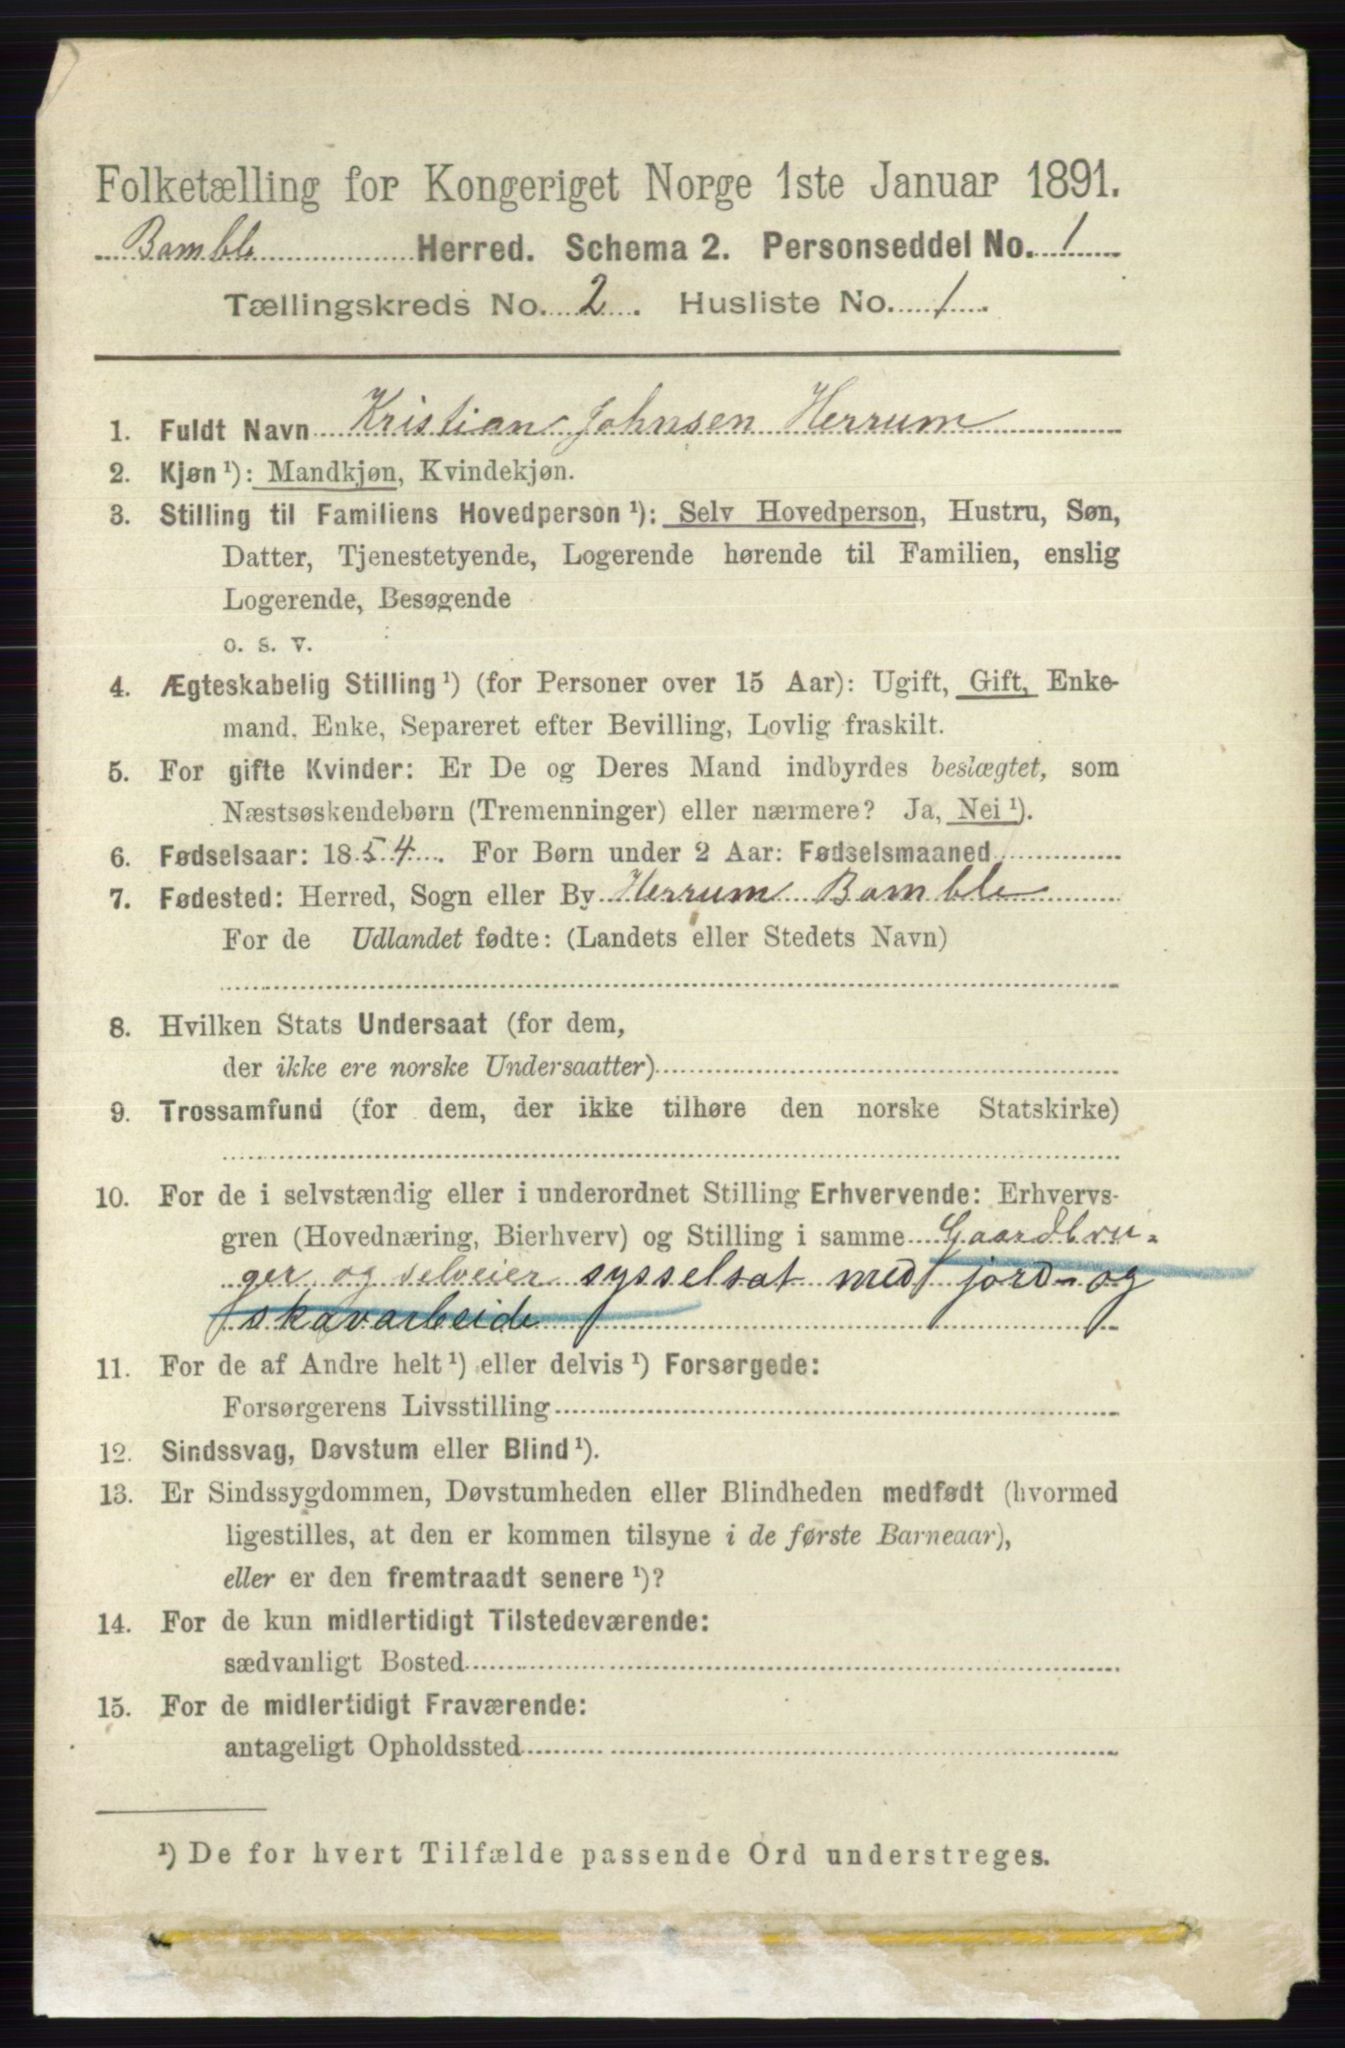 Folketælling for Kongeriget Norge 1ste Januar 1891.
Bamble Herred. Schema 2. Personseddel No. 1
Tællingskreds No. 2. Husliste No. 1.
1. Fuldt Navn Kristian Johnsen Herrum
2. Kjøn ¹): Mandkjøn, Kvindekjøn.
3. Stilling til Familiens Hovedperson ¹): Selv Hovedperson, Hustru, Søn,
Datter, Tjenestetyende, Logerende hørende til Familien, enslig
Logerende, Besøgende
o. s. v.
4. Ægteskabelig Stilling ¹) (for Personer over 15 Aar): Ugift, Gift, Enke-
mand, Enke, Separeret efter Bevilling, Lovlig fraskilt.
5. For gifte Kvinder: Er De og Deres Mand indbyrdes beslægtet, som
Næstsøskendebørn (Tremenninger) eller nærmere? Ja, Nei ¹).
6. Fødselsaar: 1854. For Børn under 2 Aar: Fødselsmaaned
7. Fødested: Herred, Sogn eller By Herrum Bamble
For de Udlandet fødte: (Landets eller Stedets Navn)
8. Hvilken Stats Undersaat (for dem,
der ikke ere norske Undersaatter)
9. Trossamfund (for dem, der ikke tilhøre den norske Statskirke)
10. For de i selvstændig eller i underordnet Stilling Erhvervende: Erhvervs-
gren (Hovednæring, Bierhverv) og Stilling i samme Gaardbru-
ger og selveier sysselsat med jord- og
skovarbeide
11. For de af Andre helt ¹) eller delvis ¹) Forsørgede:
Forsørgerens Livsstilling
12. Sindssvag, Døvstum eller Blind ¹).
13. Er Sindssygdommen, Døvstumheden eller Blindheden medfødt (hvormed
ligestilles, at den er kommen tilsyne i de første Barneaar),
eller er den fremtraadt senere ¹)?
14. For de kun midlertidigt Tilstedeværende:
sædvanligt Bosted
15. For de midlertidigt Fraværende:
antageligt Opholdssted
¹) De for hvert Tilfælde passende Ord understreges.